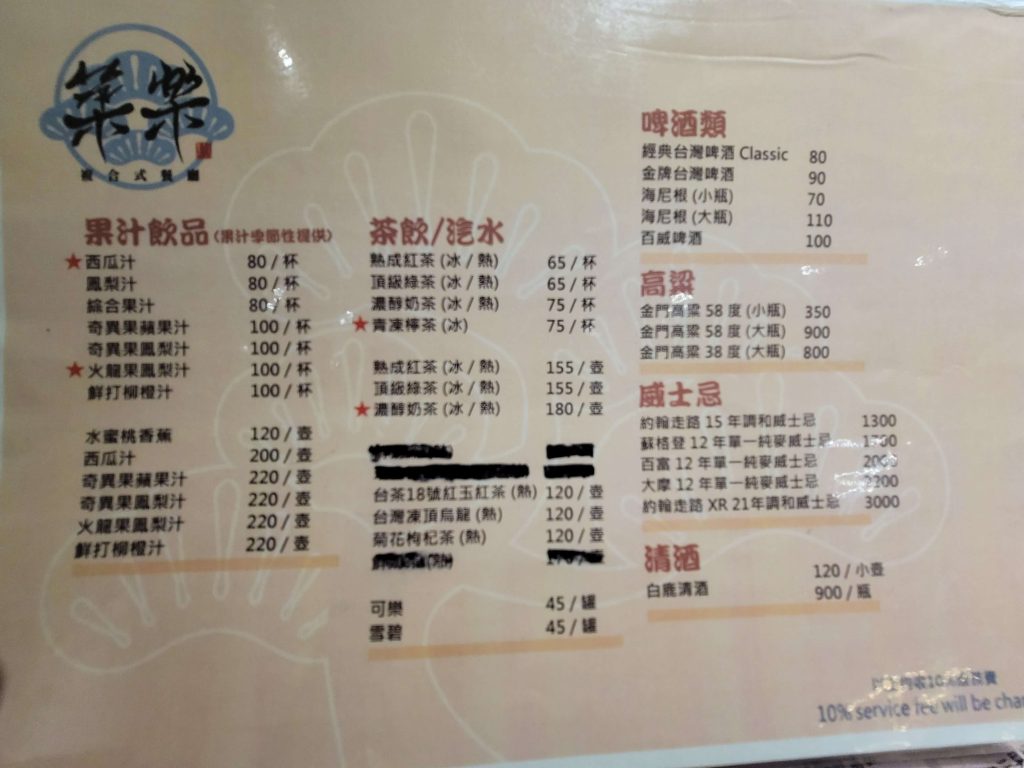 複合式餐廳
果汁飲品 (果汁季節性提供)
★ 西瓜汁 80 / 杯
鳳梨汁 80 / 杯
綜合果汁 80 / 杯
奇異果蘋果汁 100 / 杯
奇異果鳳梨汁 100 / 杯
★ 火龍果鳳梨汁 100 / 杯
鮮打柳橙汁 100 / 杯
水蜜桃香蕉 120 / 壺
西瓜汁 200 / 壺
奇異果蘋果汁 220 / 壺
奇異果鳳梨汁 220 / 壺
火龍果鳳梨汁 220 / 壺
鮮打柳橙汁 220 / 壺
茶飲/汽水
熟成紅茶 (冰 / 熱) 65 / 杯
頂級綠茶 (冰 / 熱) 65 / 杯
濃醇奶茶 (冰 / 熱) 75 / 杯
★ 青凍檸茶 (冰) 75 / 杯
熟成紅茶 (冰 / 熱) 155 / 壺
頂級綠茶 (冰 / 熱) 155 / 壺
★ 濃醇奶茶 (冰 / 熱) 180 / 壺
台茶18號紅玉紅茶 (熱) 120 / 壺
台灣凍頂烏龍 (熱) 120 / 壺
菊花枸杞茶 (熱) 120 / 壺
可樂 45 / 罐
雪碧 45 / 罐
啤酒類
經典台灣啤酒 Classic 80
金牌台灣啤酒 90
海尼根 (小瓶) 70
海尼根 (大瓶) 110
百威啤酒 100
高粱
金門高粱 58 度 (小瓶) 350
金門高粱 58 度 (大瓶) 900
金門高粱 38 度 (大瓶) 800
威士忌
約翰走路 15 年調和威士忌 1300
蘇格登 12 年單一純麥威士忌
百富 12 年單一純麥威士忌
大摩 12 年單一純麥威士忌
約翰走路 XR 21年調和威士忌 3000
清酒
白鹿清酒 120 / 小壺
900 / 瓶
10% service fee will be char